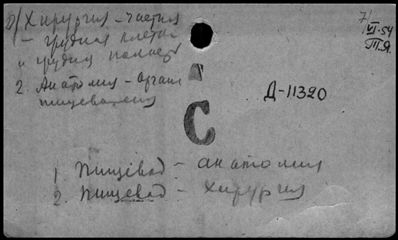 2) Хирургия - частная
- грудная клетка
и грудная полость
2. Анатомия - органы
пищеварения
7/VI-54
Т.Я.
Д-11320
С
1. Пищевод - анатомия
2. Пищевод - хирургия